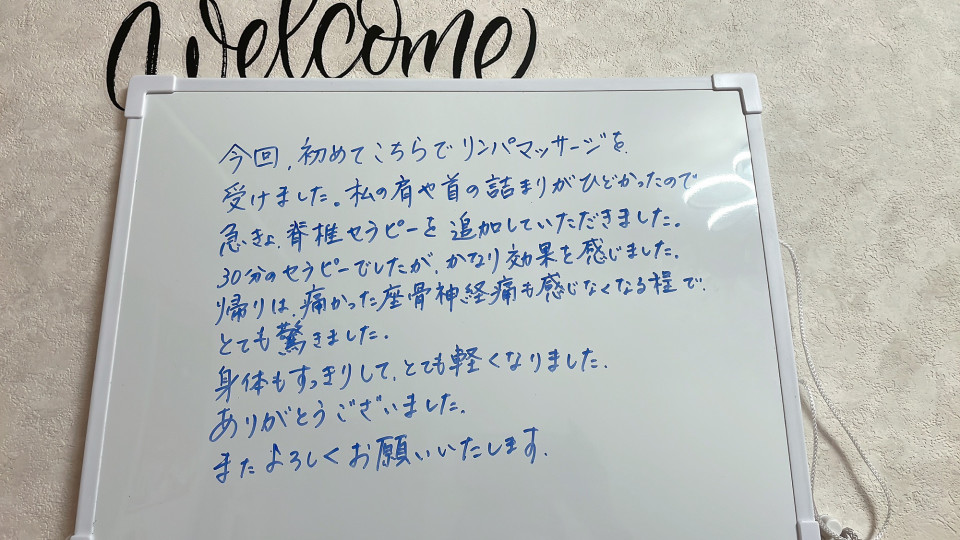 Welcome
今回、初めてこちらでリンパマッサージを
受けました。私の肩や首の詰まりがひどかったので
急きょ、脊椎セラピーを追加していただきました。
30分のセラピーでしたが、かなり効果を感じました。
帰りは、痛かった座骨神経痛も感じなくなる程で、
とても驚きました。
身体もすっきりして、とても軽くなりました。
ありがとうございました。
またよろしくお願いいたします。